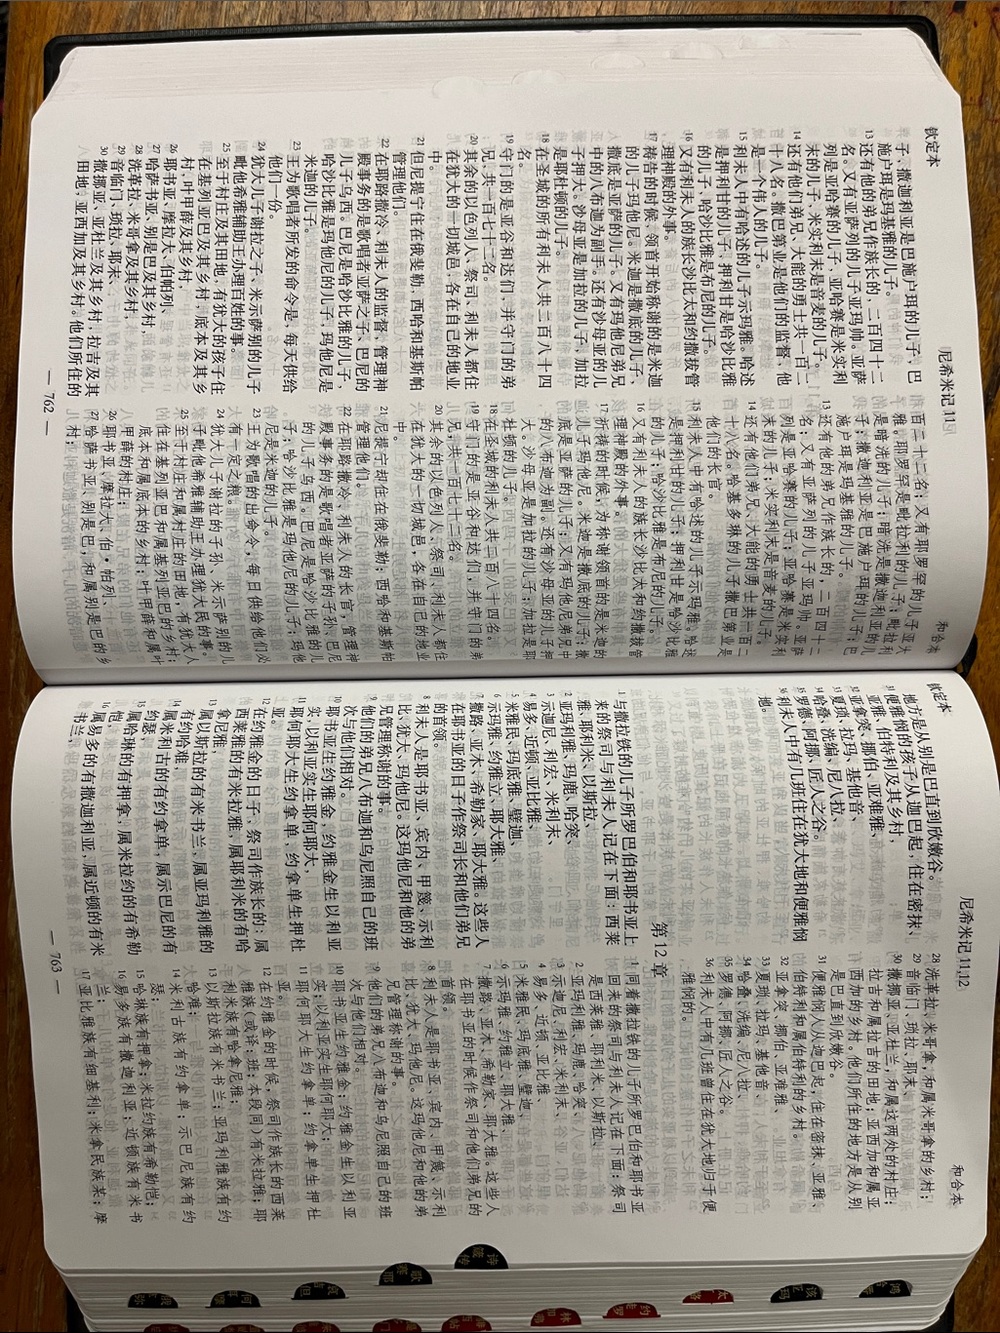 钦定本
尼希米记 11
和合本
子、撒迦利亚是巴施户珥的儿子、巴
施户珥是玛基雅的儿子。
13 还有他的弟兄作族长的，二百四十二
名。又有亚萨列的儿子亚玛帅。亚萨
列是亚哈赛的儿子，亚哈赛是米实利
末的儿子，米实利末是音麦的儿子。
14 还有他们弟兄、大能的勇士共一百二
十八名。撒巴第业是他们的监督，他
是一个伟人的儿子。
15 利未人中有哈述的儿子示玛雅。哈述
是押利甘的儿子，押利甘是哈沙比雅
的儿子，哈沙比雅是布尼的儿子。
16 又有利未人的族长沙比太和约撒拔管
理神殿的外事。
17 祷告的时候，领首开始称谢的是米迦
的儿子玛他尼。米迦是撒底的儿子，
撒底是亚萨的儿子。又有玛他尼弟兄
中的八布迦为副手。还有沙母亚的儿
子押大。沙母亚是加拉的儿子，加拉
是耶杜顿的儿子。
18 在圣城的所有利未人共二百八十四
名。
19 守门的是亚谷和达们，并守门的弟
兄，共一百七十二名。
20 其余的以色列人、祭司、利未人都住
在犹大的一切城邑，各在自己的地业
中。
21 但尼提宁住在俄斐勒；西哈和基斯帕
管理他们。
22 在耶路撒冷，利未人的监督，管理神
殿事务的是歌唱者亚萨之子、巴尼的
儿子乌西。巴尼是哈沙比雅的儿子，
哈沙比雅是玛他尼的儿子，玛他尼是
米迦的儿子。
23 王为歌唱者所发的命令是，每天供给
他们一份。
24 犹大儿子谢拉之子、米示萨别的儿子
毗他希雅辅助王办理百姓的事。
25 至于村庄及其田地，有犹大的孩子住
在基列亚巴及其乡村，底本及其乡
村，叶甲薛及其乡村，
26 耶书亚、摩拉大、伯帕列、
27 哈萨书亚、别是巴及其乡村，
28 洗革拉、米哥拿及其乡村，
29 音临门、琐拉、耶末、
30 撒挪亚、亚杜兰及其乡村，拉吉及其
田地，亚西加及其乡村。他们所住的
百二十二名；又有耶罗罕的儿子亚大
雅。耶罗罕是毗拉利的儿子；毗拉利
是暗洗的儿子；暗洗是撒迦利亚的儿
子；撒迦利亚是巴施户珥的儿子；巴
施户珥是玛基雅的儿子。
13 还有他的弟兄作族长的，二百四十二
名；又有亚萨列的儿子亚玛帅，亚萨
列是亚哈赛的儿子；亚哈赛是米实利
末的儿子；米实利末是音麦的儿子。
14 还有他们弟兄、大能的勇士共一百二
十八名。哈基多琳的儿子撒巴第业是
他们的长官。
15 利未人中有哈述的儿子示玛雅，哈述
是押利甘的儿子；押利甘是哈沙比雅
的儿子；哈沙比雅是布尼的儿子。
16 又有利未人的族长沙比太和约撒拔管
理神殿的外事。
17 祈祷的时候，为称谢领首的是米迦的
儿子玛他尼，米迦是撒底的儿子；撒
底是亚萨的儿子；又有玛他尼弟兄中
的八布迦为副。还有沙母亚的儿子押
大。沙母亚是加拉的儿子；加拉是耶
杜顿的儿子。
18 在圣城的利未人共二百八十四名。
19 守门的是亚谷和达们，并守门的弟
兄，共一百七十二名。
20 其余的以色列人、祭司、利未人都住
在犹大的一切城邑，各在自己的地业
中。
21 尼提宁却住在俄斐勒；西哈和基斯帕
管理他们。
22 在耶路撒冷、利未人的长官，管理神
殿事务的是歌唱者亚萨的子孙、巴尼
的儿子乌西。巴尼是哈沙比雅的儿
子；哈沙比雅是玛他尼的儿子；玛他
尼是米迦的儿子。
23 王为歌唱的出令，每日供给他们必
有一定之粮。
24 犹大儿子谢拉的子孙、米示萨别的儿
子毗他希雅辅助王办理犹大民的事。
25 至于村庄和属村庄的田地，有犹大人
住在基列亚巴和属基列亚巴的乡村；
底本和属底本的乡村；叶甲薛和属叶
甲薛的村庄；
26 耶书亚、摩拉大、伯·帕列、
27 哈萨·书亚、别是·巴，和属别是巴的乡
村；
— 762 —
钦定本
尼希米记 11,12
和合本
地方是从别是巴直到欣嫩谷。
31 便雅悯的孩子从迦巴起，住在密抹、
亚雅、伯特利及其乡村，
32 亚拿突、挪伯、亚难雅、
33 夏琐、拉玛、基他音、
34 哈叠、洗编、尼八拉、
35 罗德、阿挪、匠人之谷。
36 利未人中有几班住在犹大地和便雅悯
地。
28 洗革拉、米哥拿，和属米哥拿的乡村；
29 音临门、琐拉、耶末、
30 撒挪亚、亚杜兰，和属这两处的村庄；
拉吉和属拉吉的田地；亚西加和属亚
西加的乡村。他们所住的地方是从别
是巴直到欣嫩谷。
31 便雅悯人从迦巴起，住在密抹、亚雅、
伯特利和属伯特利的乡村。
32 亚拿突、挪伯、亚难雅、
33 夏琐、拉玛、基他音、
34 哈叠、洗编、尼八拉、
35 罗德、阿挪、匠人之谷。
36 利未人中有几班曾住在犹大地归于便
雅悯的。
第 12 章
1 与撒拉铁的儿子所罗巴伯和耶书亚上
来的祭司与利未人记在下面：西莱
雅、耶利米、以斯拉、
2 亚玛利雅、玛鹿、哈突、
3 示迦尼、利宏、米利末、
4 易多、近顿、亚比雅、
5 米雅民、玛底雅、璧迦、
6 示玛雅、约雅立、耶大雅、
7 撒路、亚木、希勒家、耶大雅。这些人
在耶书亚的日子作祭司长和他们弟兄
的首领。
8 利未人是耶书亚、宾内、甲篾、示利
比、犹大、玛他尼。这玛他尼和他的弟
兄管理称谢的事。
9 他们的弟兄八布迦和乌尼照自己的班
次与他们相对。
10 耶书亚生约雅金，约雅金生以利亚
实，以利亚实生耶何耶大，
11 耶何耶大生约拿单，约拿单生押杜
亚。
12 在约雅金的日子、祭司作族长的：属
西莱雅的有米拉雅，属耶利米的有哈
拿尼雅，
13 属以斯拉的有米书兰，属亚玛利雅的
有约哈难，
14 属米利古的有约拿单，属示巴尼的有
约瑟，
15 属哈琳的有押拿，属米拉约的有希勒
恺，
16 属易多的有撒迦利亚，属近顿的有米
书兰，
1 同着撒拉铁的儿子所罗巴伯和耶书亚
回来的祭司与利未人记在下面：祭司
是西莱雅、耶利米、以斯拉、
2 亚玛利雅、玛鹿、哈突、
3 示迦尼、利宏、米利末、
4 易多、近顿、亚比雅、
5 米雅民、玛底雅、璧迦、
6 示玛雅、约雅立、耶大雅、
7 撒路、亚木、希勒家、耶大雅。这些人
在耶书亚的时候作祭司和他们弟兄的
首领。
8 利未人是耶书亚、宾内、甲篾、示利
比、犹大、玛他尼。这玛他尼和他的弟
兄管理称谢的事。
9 他们的弟兄八布迦和乌尼照自己的班
次与他们相对。
10 耶书亚生约雅金；约雅金生以利亚
实；以利亚实生耶何耶大；
11 耶何耶大生约拿单；约拿单生押杜
亚。
12 在约雅金的时候，祭司作族长的西莱
雅族（或译：班；本段同）有米拉雅；耶
利米族有哈拿尼雅；
13 以斯拉族有米书兰；亚玛利雅族有约
哈难；
14 米利古族有约拿单；示巴尼族有约
瑟；
15 哈琳族有押拿；米拉约族有希勒恺；
16 易多族有撒迦利亚；近顿族有米书
兰；
17 亚比雅族有细基利；米拿民族某；摩
— 763 —